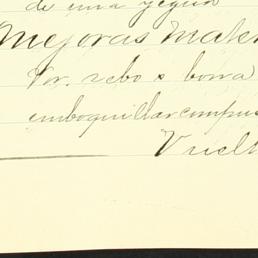 de una yegua
Mejoras Mate
Por. rebo s borra
emboquillar compus
Vuelt